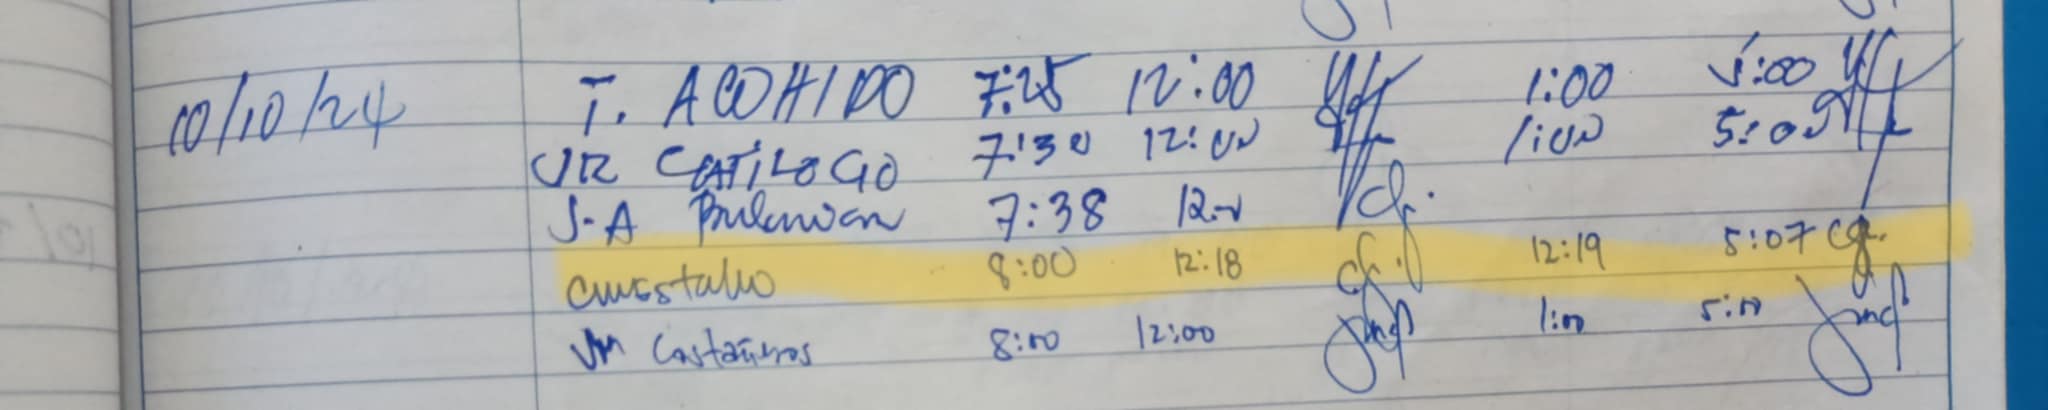 10/10/24 T. ACOHIDO 7:25 12:00 1:00 5:00
JR CATILOGO 7:30 12:00 1:00 5:00
J-A 7:38 12:00
8:00 12:18 12:19 5:07
JM Castañeros 8:00 12:00 1:00 5:00